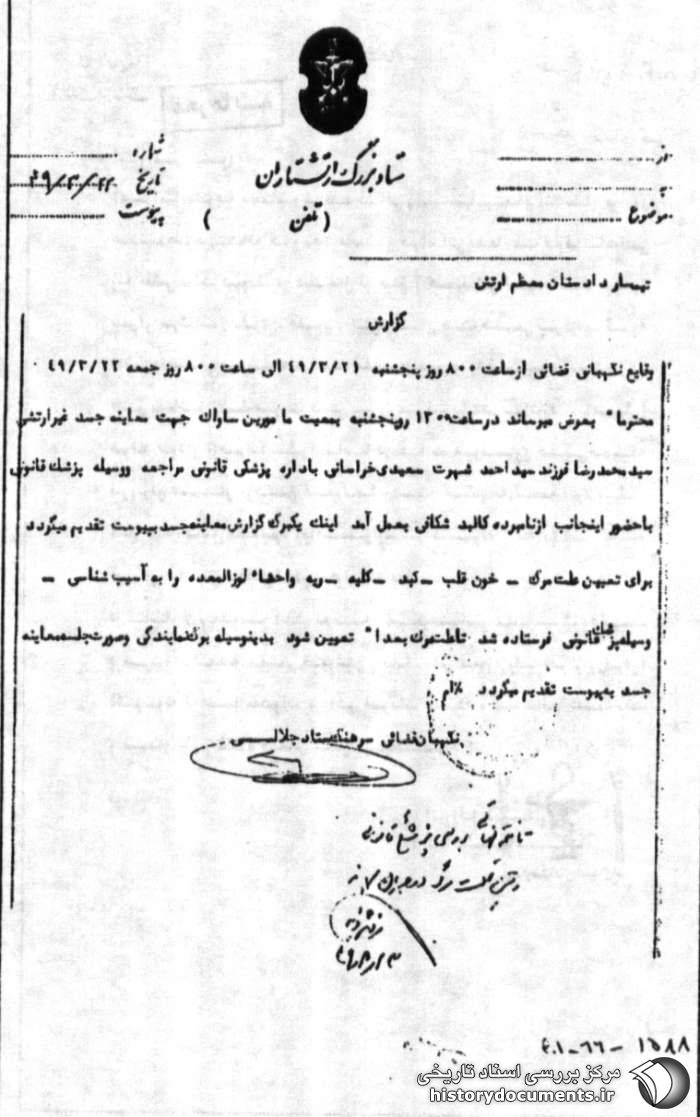 ستاد بزرگ ارتشتاران
( تلفن )
از
به
موضوع
شماره
تاریخ ۴۹/۳/۲۲
پیوست
تیمسار دادستان معظم ارتش
گزارش
وقایع نگهبانی قضائی ازساعت ۸۰۰ روز پنجشنبه ۴۹/۳/۲۱ الی ساعت ۸۰۰ روز جمعه ۴۹/۳/۲۲
محترما" بعرض میرساند درساعت ۱۳۰۰ روپنجشنبه بمعیت مامورین ساواک جهت معاینه جسد غیرارتشی
سیدمحمدرضا فرزند سیداحمد شهرت سعیدی خراسانی باداره پزشکی قانونی مراجعه ووسیله پزشک قانونی
باحضور اینجانب ازنامبرده کالبد شکافی بعمل آمد اینک یکبرگ گزارش معاینه جسد بپیوست تقدیم میگردد
برای تعیین علت مرگ – خون قلب – کبد – کلیه – ریه واحشاء لوزالمعده را به آسیب شناسی –
وسیله پزشک قانونی فرستاده شد تاعلت مرگ بعدا" تعیین شود بدینوسیله برگ نمایندگی وصورتجلسه معاینه
جسد به پیوست تقدیم میگردد
نگهبان قضائی سرهنگ ستاد جلالی
علت مرگ
۱۵۸۸ – ۶۶ – ۴۰۱
مرکز بررسی اسناد تاریخی
historydocuments.ir